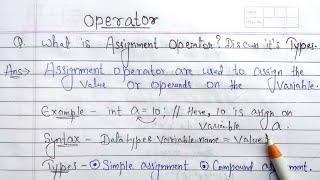 Operator
Q. What is Assignment Operator? Discuss it's Types.
Ans:- Assignment operator are used to assign the
value or operands on the variable.
Example - int a=10; // Here, 10 is assign on
variable a.
Syntax - Data types variable name = value;
Types - Simple assignment Compound assignment.